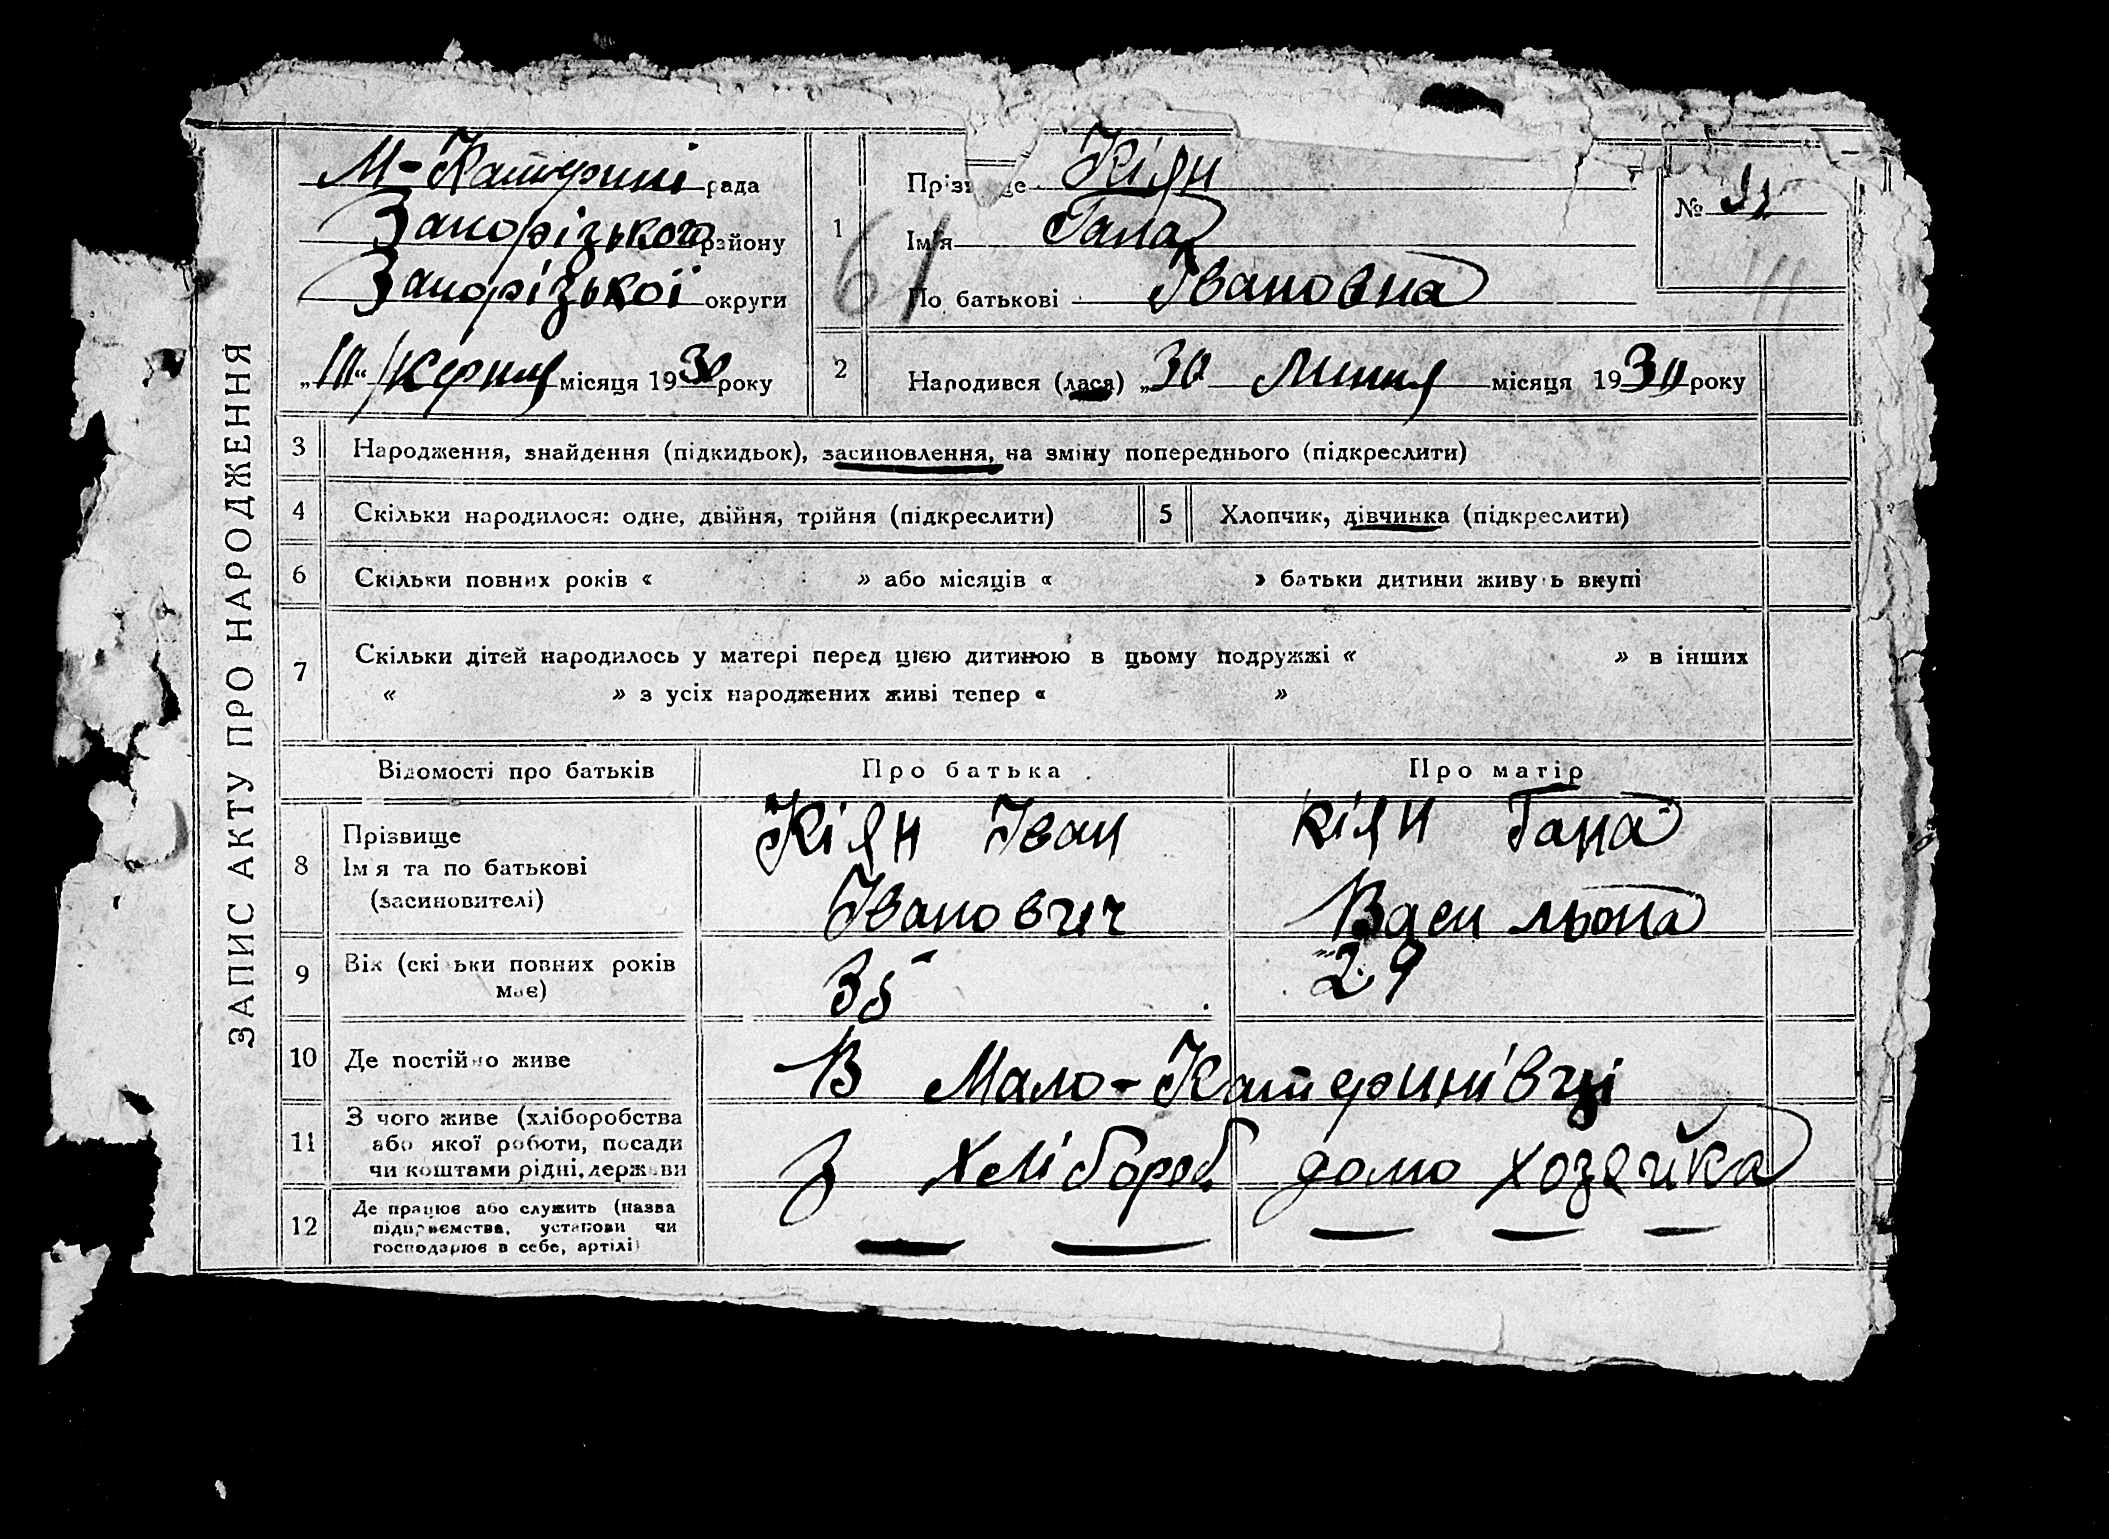 ЗАПИС АКТУ ПРО НАРОДЖЕННЯ
М-Катерині рада
Запорізького району
Запорізької округи
„10“ серпня місяця 1930 року
1 Прізвище Кіян
Імя Гана
По батькові Івановна
№
61
2 Народився (лася) „30 Липня місяця 1930 року
3 Народження, знайдення (підкидьок), засиновлення, на зміну попереднього (підкреслити)
4 Скільки народилося: одне, двійня, трійня (підкреслити)
5 Хлопчик, дівчинка (підкреслити)
6 Скільки повних років « » або місяців « » батьки дитини живуть вкупі
7 Скільки дітей народилось у матері перед цією дитиною в цьому подружжі « » в інших
« » з усіх народжених живі тепер « »
Відомості про батьків Про батька Про матір
8 Прізвище
Імя та по батькові
(засиновителі)
Кіян Іван
Іванович
кіян Гана
Васильона
9 Вік (скільки повних років
має)
35 29
10 Де постійно живе В Мало-Катеринівці
11 З чого живе (хліборобства
або якої роботи, посади
чи коштами рідні, держави
З хлібороб домо хозяйка
12 Де працює або служить (назва
підприємства, установи чи
господарює в себе, артілі)